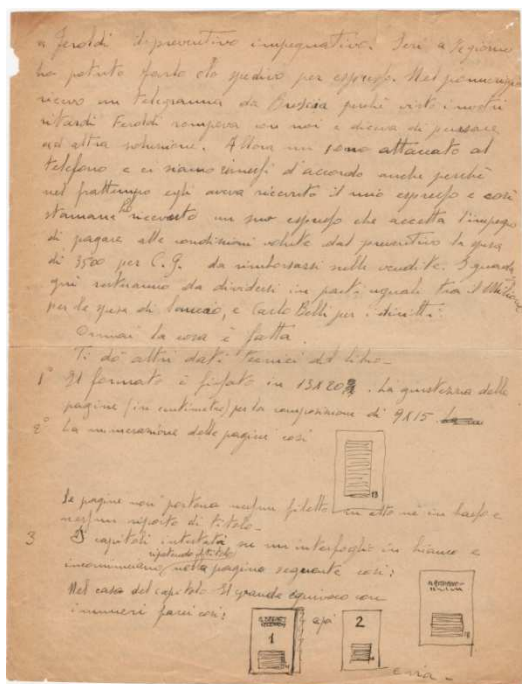 a Feroldi il preventivo impegnativo. Ieri a mezzogiorno
ho potuto farlo e lo spedivo per espresso. Nel pomeriggio
ricevo un telegramma da Brescia perchè visto i nostri
ritardi Feroldi rompeva con noi e diceva di pensare
ad altra soluzione. Allora mi sono attaccato al
telefono e ci siamo rimessi d'accordo anche perchè
nel frattempo egli aveva ricevuto il mio espresso e così
stamane ho ricevuto un suo espresso che accetta l'impegno
di pagare alle condizioni volute dal preventivo la spesa
di 3500 per C. G. da rimborsarsi nelle vendite. I guada
gni resteranno da dividersi in parti uguali tra il Milione
per la spesa di lancio, e Carlo Belli per i diritti.
Ormai la cosa è fatta.
Ti dò altri dati tecnici del libro -
1° Il formato è fissato in 13 X 20 . La giustezza delle
pagine (in centimetri) per la composizione di 9 X 15.
2° La numerazione delle pagine così
13
Le pagine non portano nessun filetto in alto nè in basso e
nessun riporto di titolo -
3 I capitoli intestati su un interfoglio in bianco e
ripetendo il titolo
incominciano nella pagina seguente così:
Nel caso del capitolo Il grande equivoco con
i numeri farei così:
1
e poi
2